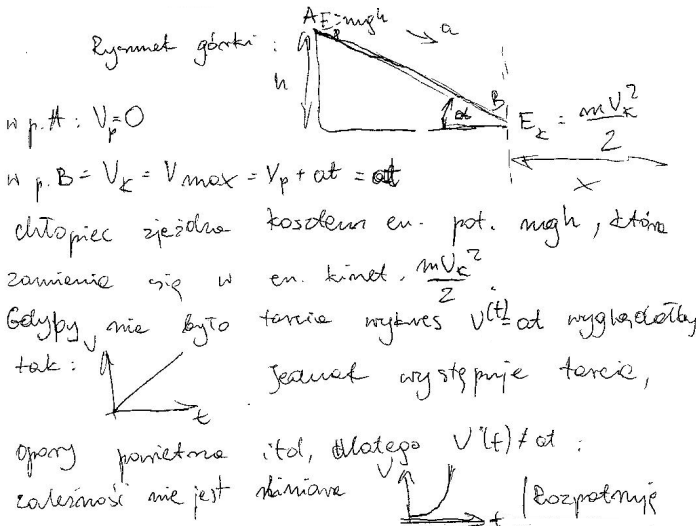 A E=mgh
Rysunek górki :
a
h
B
α
w p. A : Vp=0
E_k = mV_k²/2
x
w p. B = V_k = Vmax = Vp + at = at
chłopiec zjeżdża kosztem en. pot. mgh, która
zamienia się w en. kinet. mV_k²/2.
Gdyby nie było tarcia wykres V(t)=at wyglądałby
tak : V t Jednak występuje tarcie,
opory powietrza itd, dlatego V(t) ≠ at :
zależność nie jest liniowa V t (Rozpatruję